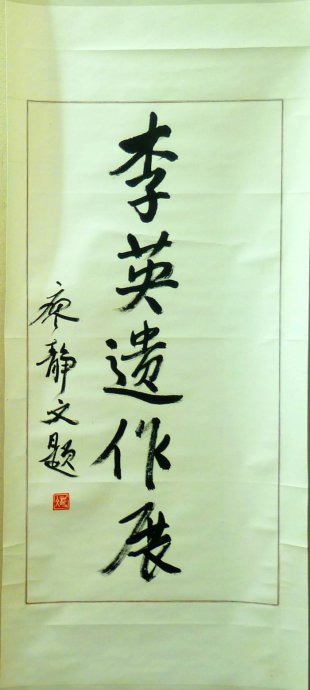 李英遗作展
廖静文题